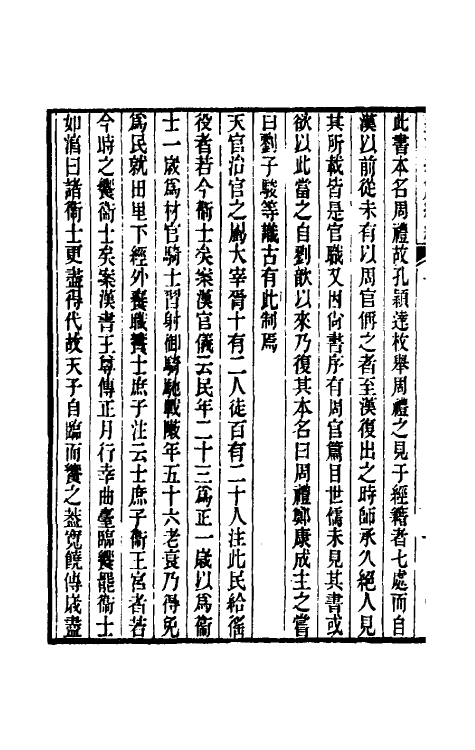 此書本名周禮故孔穎達枚舉周禮之見于經籍者七處而自
漢以前從未有以周官偁之者至漢復出之時師承久絕人見
其所載皆是官職又因尙書序有周官篇目世儒未見其書或
欲以此當之自劉歆以來乃復其本名曰周禮鄭康成主之嘗
曰劉子駿等識古有此制焉
天官治官之屬大宰胥十有二人徒百有二十人注此民給徭
役者若今衞士矣案漢官儀云民年二十三爲正一歲以爲衞
士一歲爲材官騎士習射御騎馳戰陳年五十六老衰乃得免
爲民就田里下經外饔職饗士庶子注云士庶子衞王宮者若
今時之饗衞士矣案漢書王尊傳正月行幸曲臺臨饗罷衞士
如淳曰諸衞士更盡得代故天子自臨而饗之葢寬饒傳歲盡